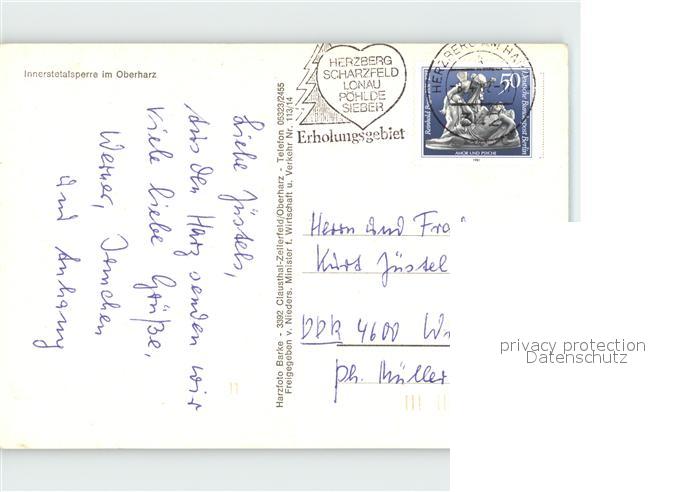 Innerstetalsperre im Oberharz
Liebe Jüstels,
Aus dem Harz senden wir
viele liebe Grüße,
Werner,
und Anhang
Harzfoto Barke - 3392 Clausthal-Zellerfeld/Oberharz - Telefon 05323/2455
Freigegeben v. Nieders. Minister f. Wirtschaft u. Verkehr Nr. 113/14
HERZBERG
SCHARZFELD
LONAU
PÖHLDE
SIEBER
Erholungsgebiet
HERZBERG AM HA
50
Deutsche Bundespost Berlin
Reinhold
AMOR UND PSYCHE
1981
Herrn und
Kurt Jüstel
DDR 4600
ph. Müller
privacy protection
Datenschutz